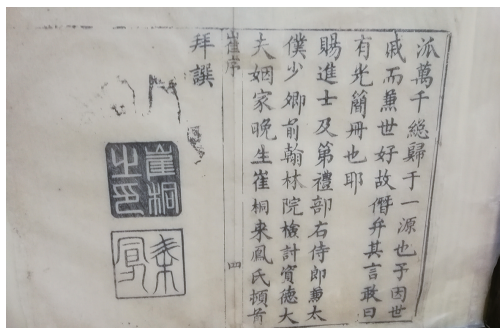 派萬千總歸于一源也予因世
戚而兼世好故僭弁其言敢曰
有光簡冊也耶
賜進士及第禮部右侍郎兼太
僕少卿前翰林院檢討資德大
夫姻家晚生崔桐來鳳氏頓首
拜譔
四
崔桐之印